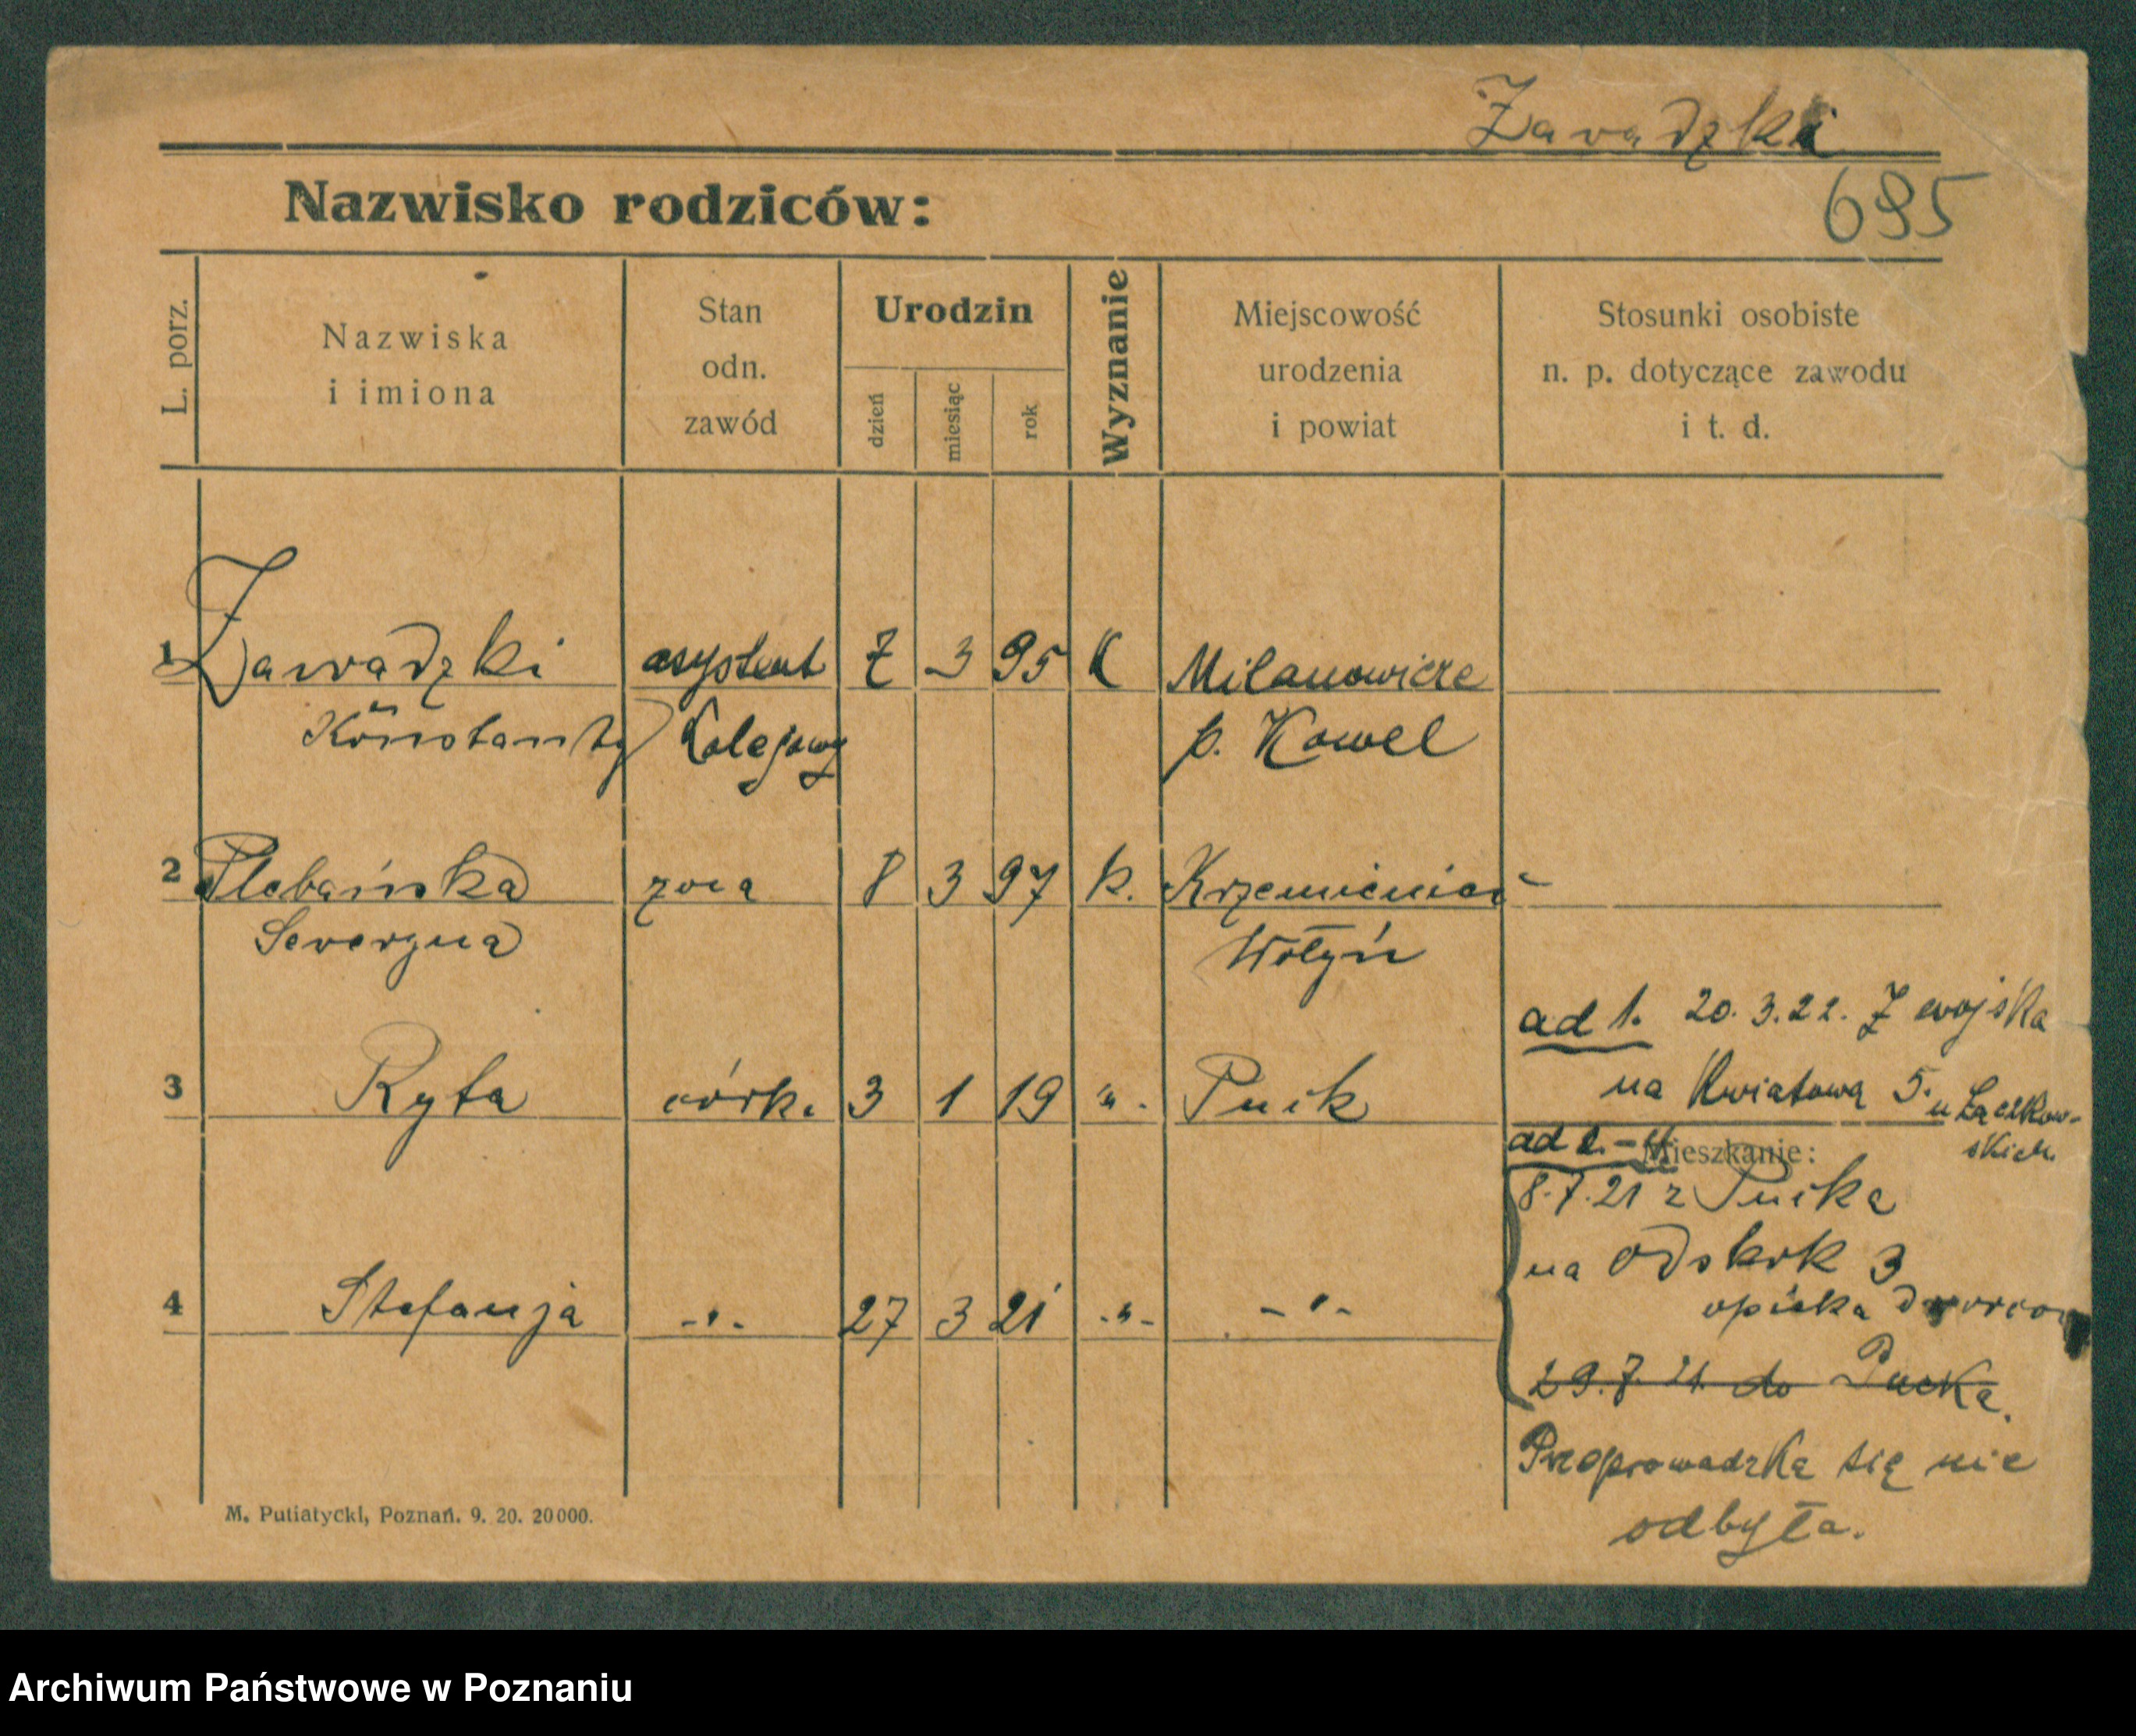 Zawadzki
Nazwisko rodziców:
695
L. porz.
Nazwiska
i imiona
Stan
odn.
zawód
Urodzin
dzień
miesiąc
rok
Wyznanie
Miejscowość
urodzenia
i powiat
Stosunki osobiste
n. p. dotyczące zawodu
i t. d.
1 Zawadzki asystent 7 3 95 K Milanowicze
Konstanty kolejowy p. Kowel
2 Plebańska żona 8 3 97 k.
Seweryna Wołyń
3 Ryta córka 3 1 19 " Puck
4 Stefanja -"- 27 3 21 -"- -"-
ad 1. 20.3.22. Z wojska
na Kwiatową 5. u Łączkow-
skich.
Mieszkanie:
ad 2.-4
8.7.21 z Pucka
na 3
opieka
29.7.21. do Pucka.
Przeprowadzka się nie
odbyła.
M. Putiatycki, Poznań. 9. 20. 20000.
Archiwum Państwowe w Poznaniu